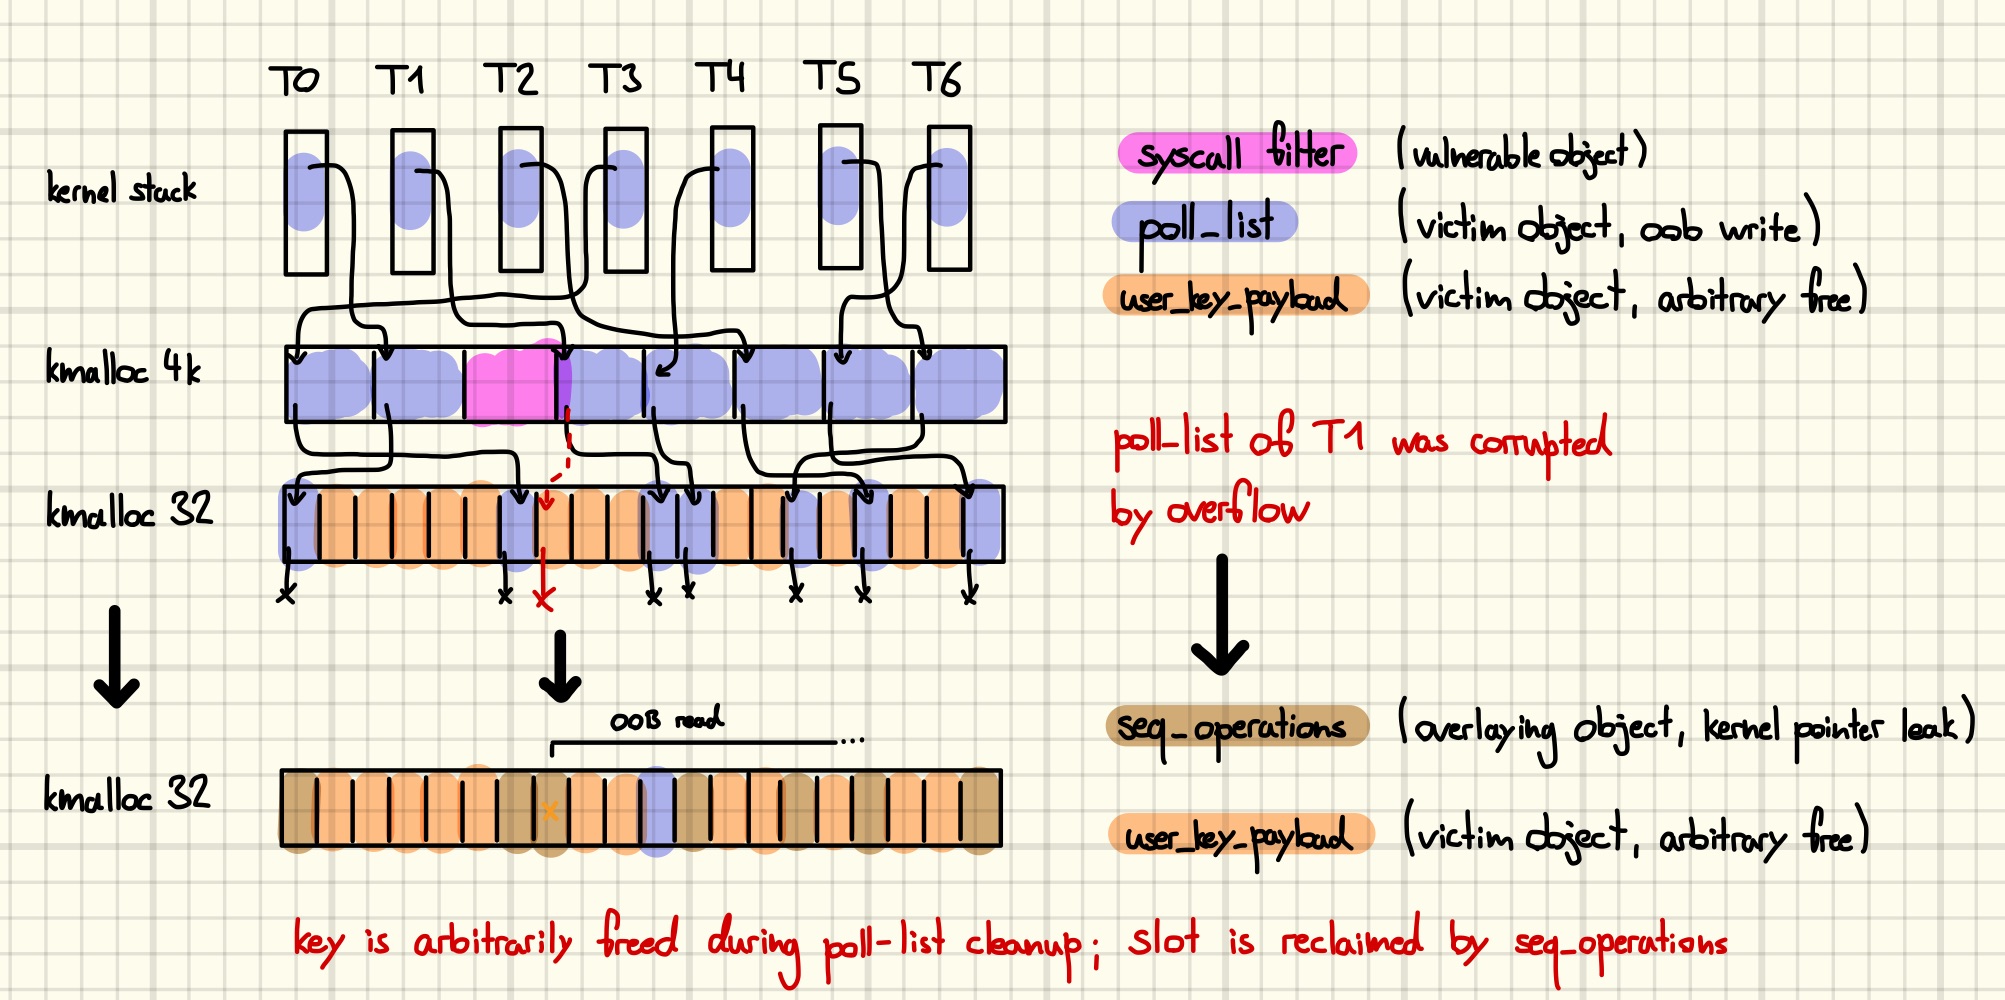 T0 T1 T2 T3 T4 T5 T6
kernel stack
kmalloc 4k
kmalloc 32
syscall filter (vulnerable object)
poll_list (victim object, oob write)
user_key_payload (victim object, arbitrary free)
poll_list of T1 was corrupted
by overflow
OOB read
kmalloc 32
seq_operations (overlaying object, kernel pointer leak)
user_key_payload (victim object, arbitrary free)
key is arbitrarily freed during poll-list cleanup; slot is reclaimed by seq_operations